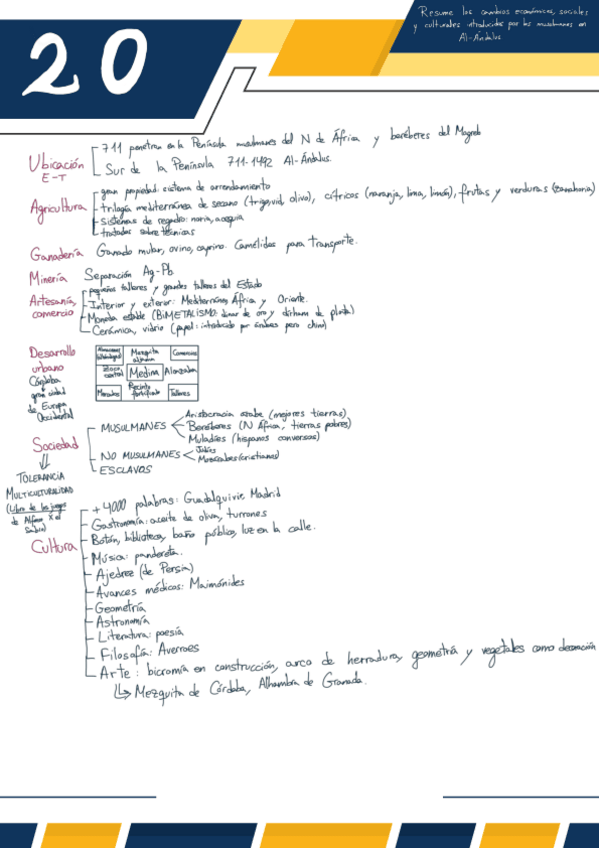 20
Resume los cambios económicos, sociales
y culturales introducidos por los musulmanes en
Al-Ándalus
Ubicación
E-T
711 penetran en la Península musulmanes del N de África y beréberes del Magreb
Sur de la Península 711-1492 Al-Ándalus.
Agricultura
gran propiedad: sistema de arrendamiento
trilogía mediterránea de secano (trigo, vid, olivo), cítricos (naranja, lima, limón), frutas y verduras (zanahoria)
sistemas de regadío: noria, acequia
tratados sobre técnicas
Ganadería
Ganado mular, ovino, caprino. Camélidos para transporte.
Minería
Separación Ag-Pb.
Artesanía,
comercio
pequeños talleres y grandes talleres del Estado
Interior y exterior: Mediterráneo, África y Oriente.
Moneda estable (BIMETALISMO: dinar de oro y dírham de plata)
Cerámica, vidrio (papel: introducido por árabes pero chino)
Desarrollo
urbano
Córdoba
gran ciudad
de Europa
Occidental
Mezquita
aljama
Comercios
Zoco
central
Medina
Alcazaba
Mercados
Recinto
fortificado
Talleres
Sociedad
TOLERANCIA
MULTICULTURALIDAD
(Libro de los juegos
de Alfonso X el
Sabio)
MUSULMANES
Aristocracia árabe (mejores tierras)
Beréberes (N África, tierras pobres)
Muladíes (hispanos conversos)
NO MUSULMANES
Judíos
Mozárabes (cristianos)
ESCLAVOS
Cultura
+ 4000 palabras: Guadalquivir Madrid
Gastronomía: aceite de oliva, turrones
Botón, biblioteca, baño público, luz en la calle.
Música: pandereta.
Ajedrez (de Persia)
Avances médicos: Maimónides
Geometría
Astronomía
Literatura: poesía
Filosofía: Averroes
Arte: bicromía en construcción, arco de herradura, geometría y vegetales como decoración
Mezquita de Córdoba, Alhambra de Granada.